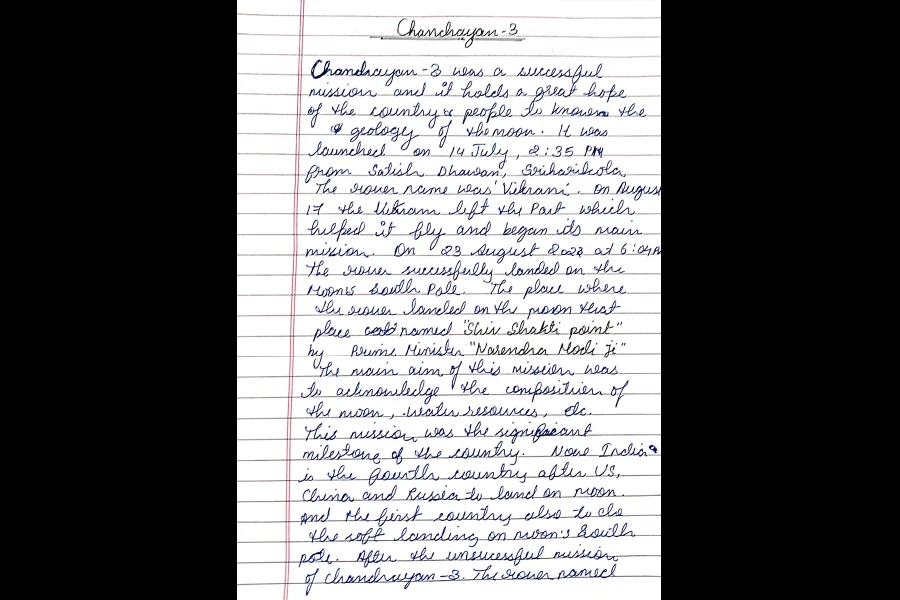 Chandrayan-3
Chandrayan-3 was a successful
mission and it holds a great hope
of the country & people to known the
geology of the moon. It was
launched on 14 July, 2:35 PM
from Satish Dhawan, Sriharikota
The rover name was 'Vikram'. On August
17 the Vikram left the Part which
helped it fly and began its main
mission. On 23 August 2023 at 6:04 P
the rover successfully landed on the
Moon's South Pole. The place where
the rover landed on the moon that
place named "Shiv Shakti point"
by Prime Minister "Narendra Modi Ji"
The main aim of this mission was
to acknowledge the composition of
the moon, water resources, etc.
This mission was the significant
milestone of the country. Now India
is the fourth country after US,
China and Russia to land on moon.
And the first country also to do
the soft landing on moon's South
pole. After the unsuccessful mission
of Chandrayan-3. The rover named